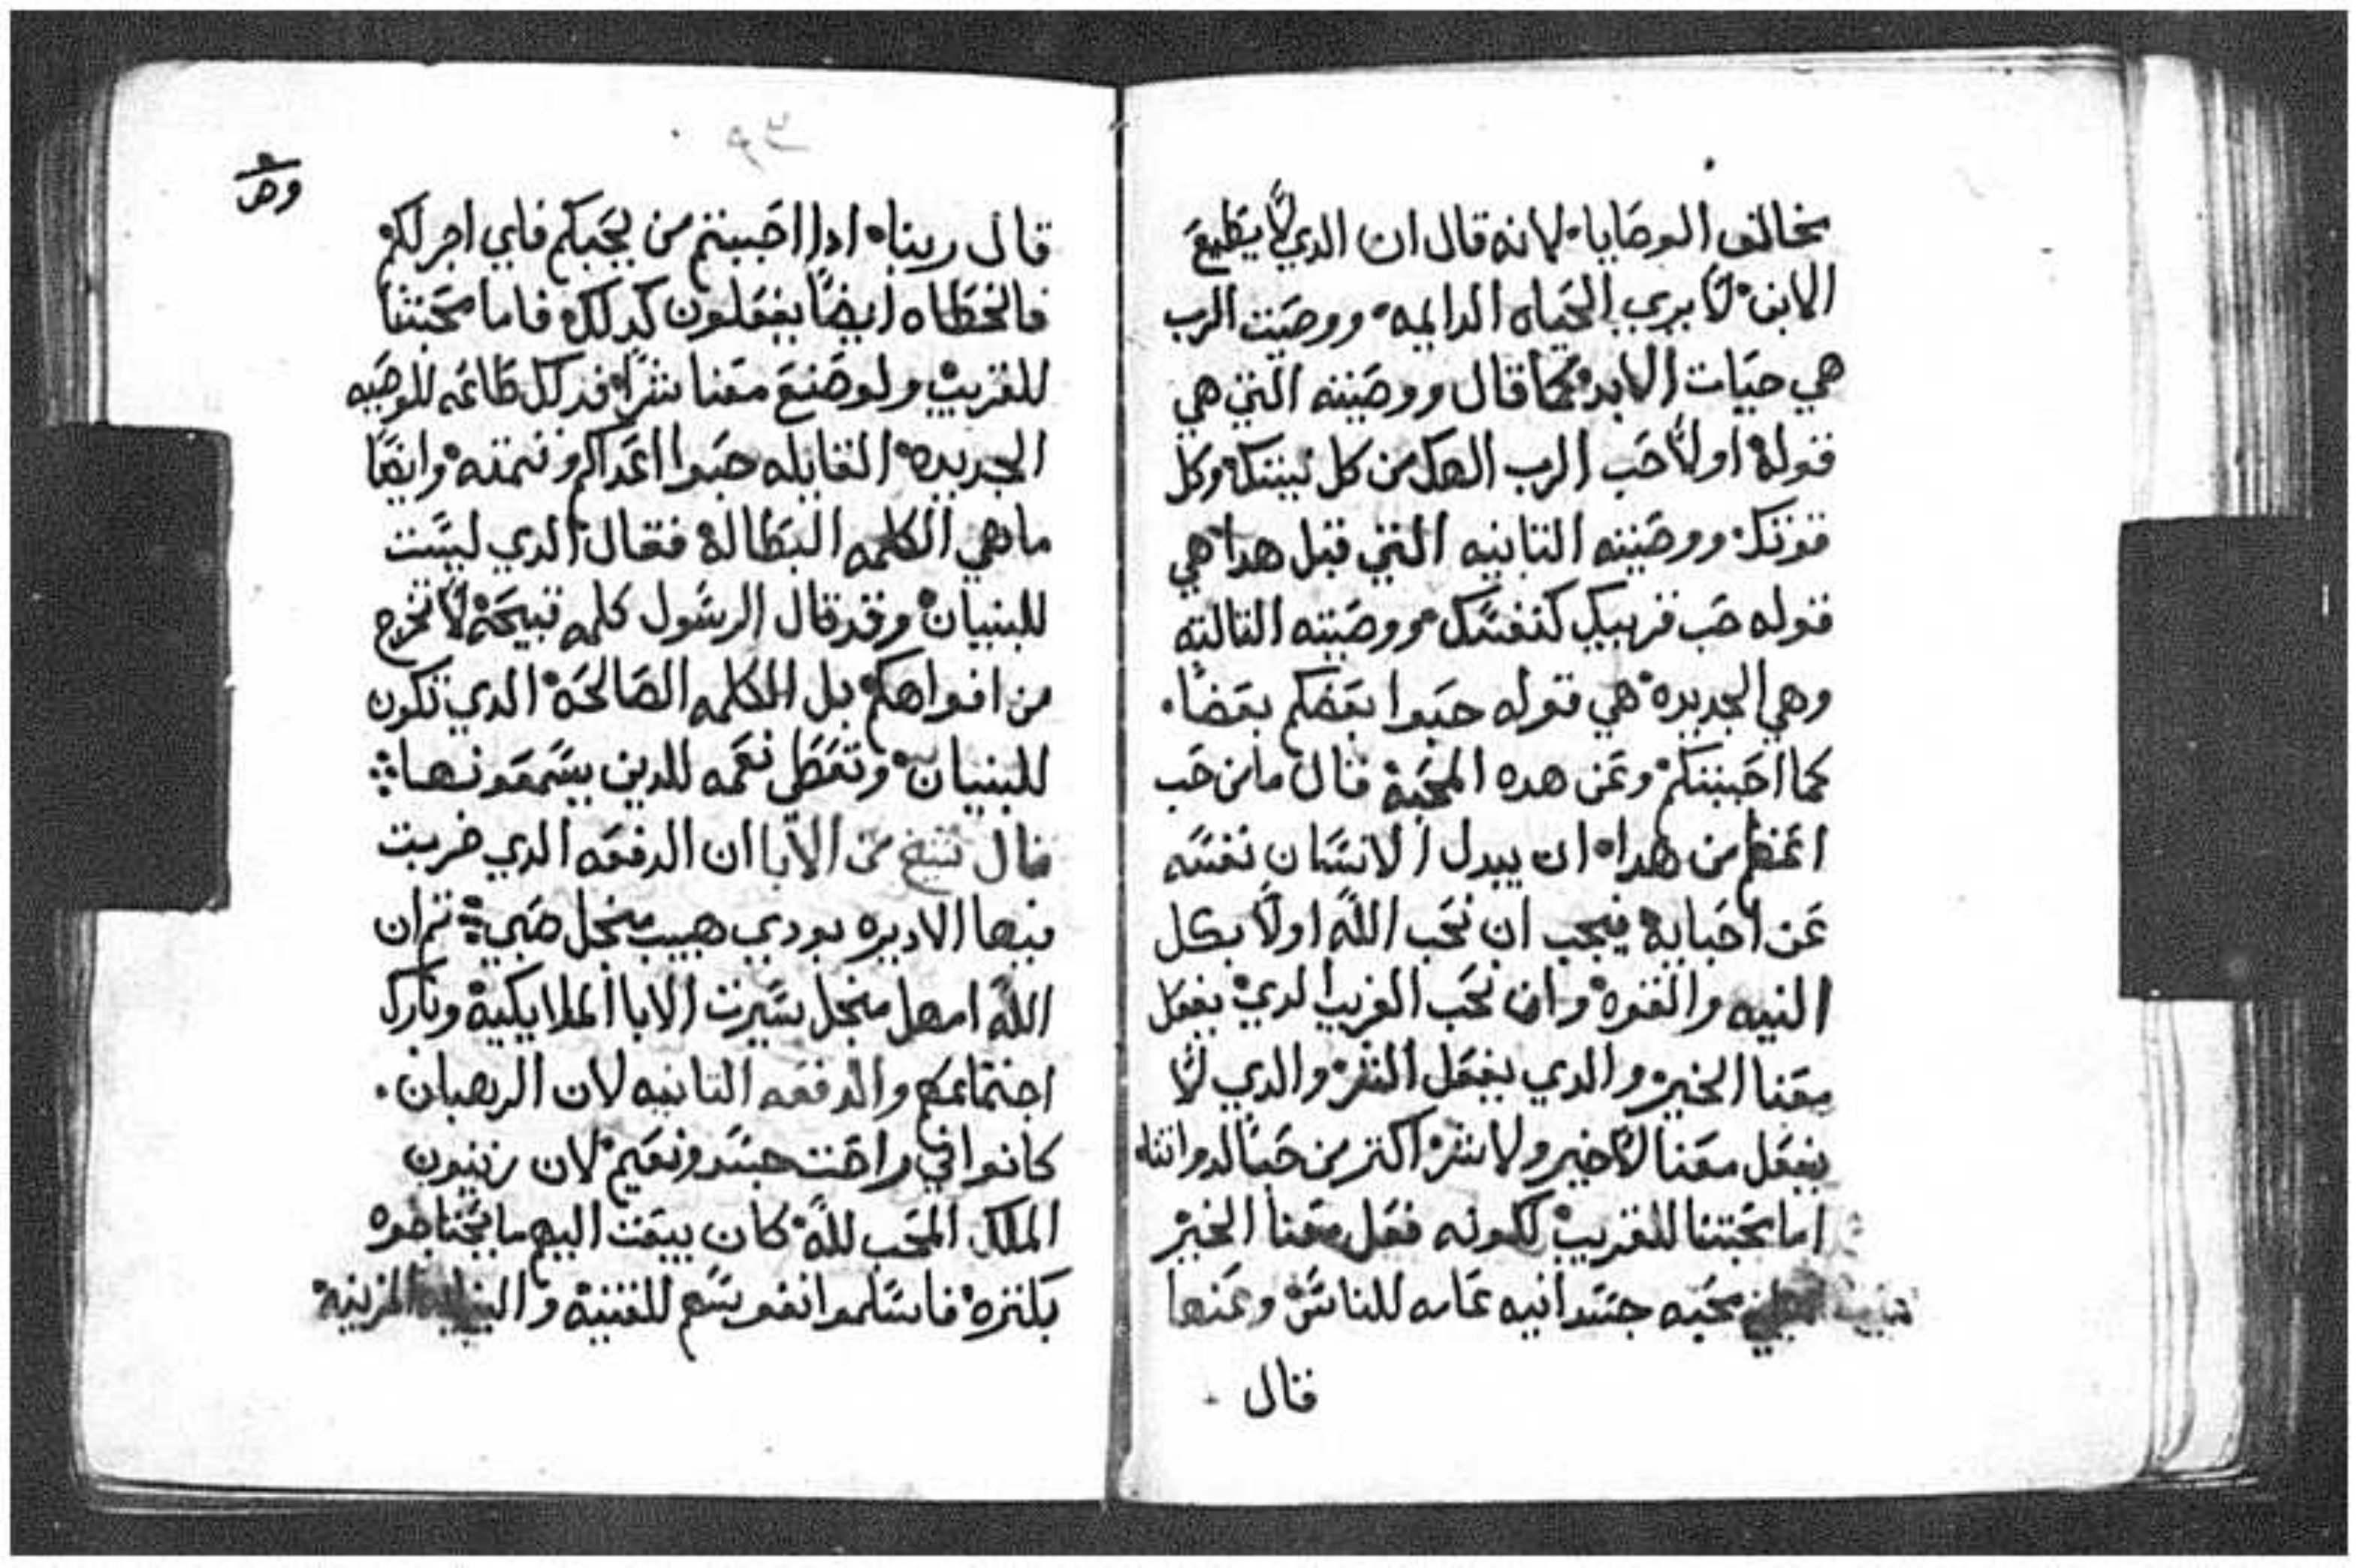 يخالف الوصايا٠ لانه قال ان الدي لا يطيع
الابن٠ لا يري الحياه الدايمه٠ ووصيت الرب
هي حيات الابد٠ كما قال ووصيته التي هي
قوله اولا حب الرب الهك من كل نيتك وكل
قوتك٠ ووصيته التانيه التي قبل هدا هي
قوله حب قريبك كنفسك ووصيته التالته
وهي الجديده٠ هي قوله حبوا بعضكم بعضا٠
كما احببتكم٠ وعن هده المحبه قال ما من حب
اعظم من هدا٠ ان يبدل الانسان نفسه
عن احبايه فيجب ان نحب الله اولا بكل
النيه والقوه٠ وان نحب القريب الدي يفعل
معنا الخير٠ والدي يفعل الشر٠ والدي لا
يفعل معنا لا خير ولا شر٠ اكتر من حبنا لدواتنا
اما محبتنا للقريب لكونه فعل معنا الخير
محبه جسدانيه عامه للناس وعنها
قال
وص
قال ربنا٠ ادا احببتم من يحبكم فاي اجر لكم
فالخطاه ايضا يفعلون كدلك فاما محبتنا
للقريب ولو صنع معنا شرا٠ فدلك طاعه للوصيه
الجديده٠ القايله حبوا اعداكم وتمته٠ وايضا
ما هي الكلمه البطاله فقال الدي ليست
للبنيان٠ وقد قال الرسول كلمه قبيحه لا تخرج
من افواهكم٠ بل الكلمه الصالحه٠ الدي تكون
للبنيان٠ وتعطي نعمه للدين يسمعونها
قال شيخ من الابا ان الدفعه الدي خربت
فيها الاديره بودي هبيب منجل صبي تم ان
الله امهل منجل سيرت الابا الملايكيه وبارك
اجتماعهم والدفعه التانيه لان الرهبان٠
كانوا في راحت جسد ونعيم٠ لان زينون
الملك المحب لله كان يبعت اليهم ما يحتاجوه
بكتره٠ فاسلموا نفوسهم للقنيه و المزينه